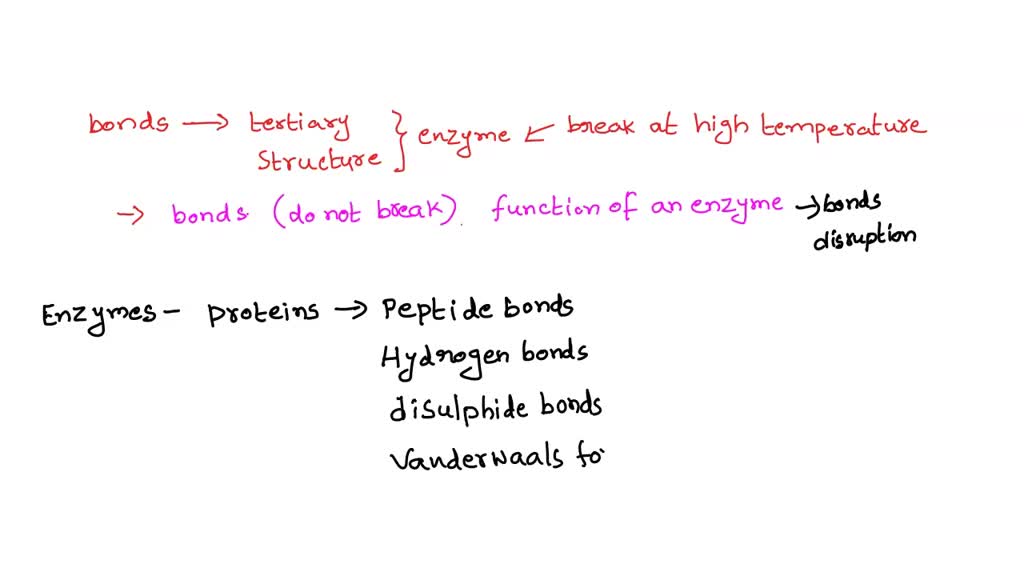 bonds → tertiary structure } enzyme ← break at high temperature
→ bonds (do not break). function of an enzyme → bonds disruption
Enzymes - proteins → Peptide bonds
Hydrogen bonds
disulphide bonds
Vanderwaals fo